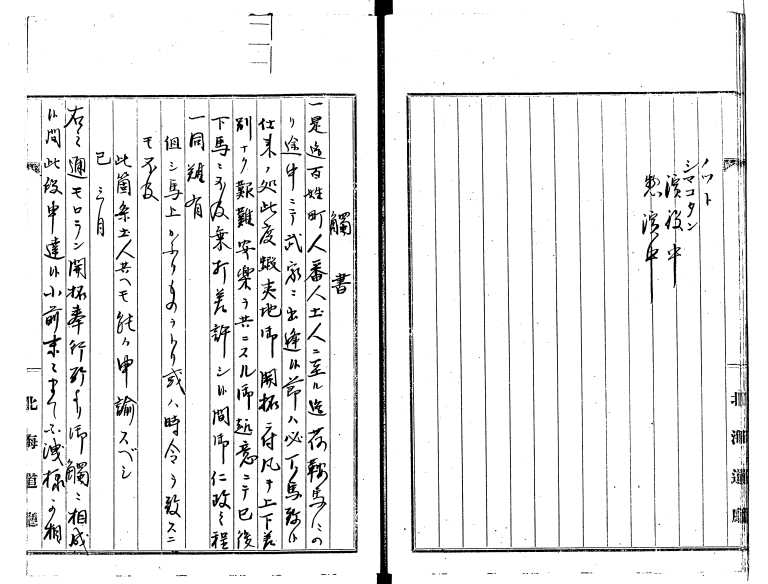 ノツト
シマコタン
濱役中
惣濱中
北海道廳
觸書
一是迠百姓町人番人土人ニ至ル迠荷鞍馬ニの
り途中ニテ武家ニ出逢候節ハ必下馬致候
仕来ノ処此度蝦夷地御開拓ニ付凡ソ上下差
別ナク艱難安樂ヲ共ニスル御趣意ニテ已後
下馬ニ不及乗打差許シ候間御仁政之程
一同難有
但シ馬上かふりものうり或ハ時令ヲ致スニ
モ不及
此箇条土人共ヘモ能々申諭スベシ
巳三月
右之通モロラン開拓奉行所より御觸ニ相成
候間此段申達候小前末々まて不洩様可相
北海道廳